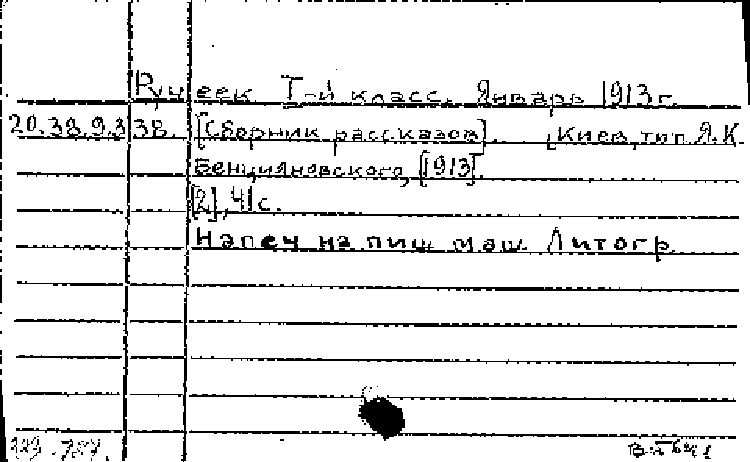 Ручеек I-й класс. Январь 1913 г.
20.38.9.3 38. [Сборник рассказов]. Киев, тип. Я.К.
Бенцияновского, [1913].
[2], 41 с.
Напеч на пиш маш Литогр